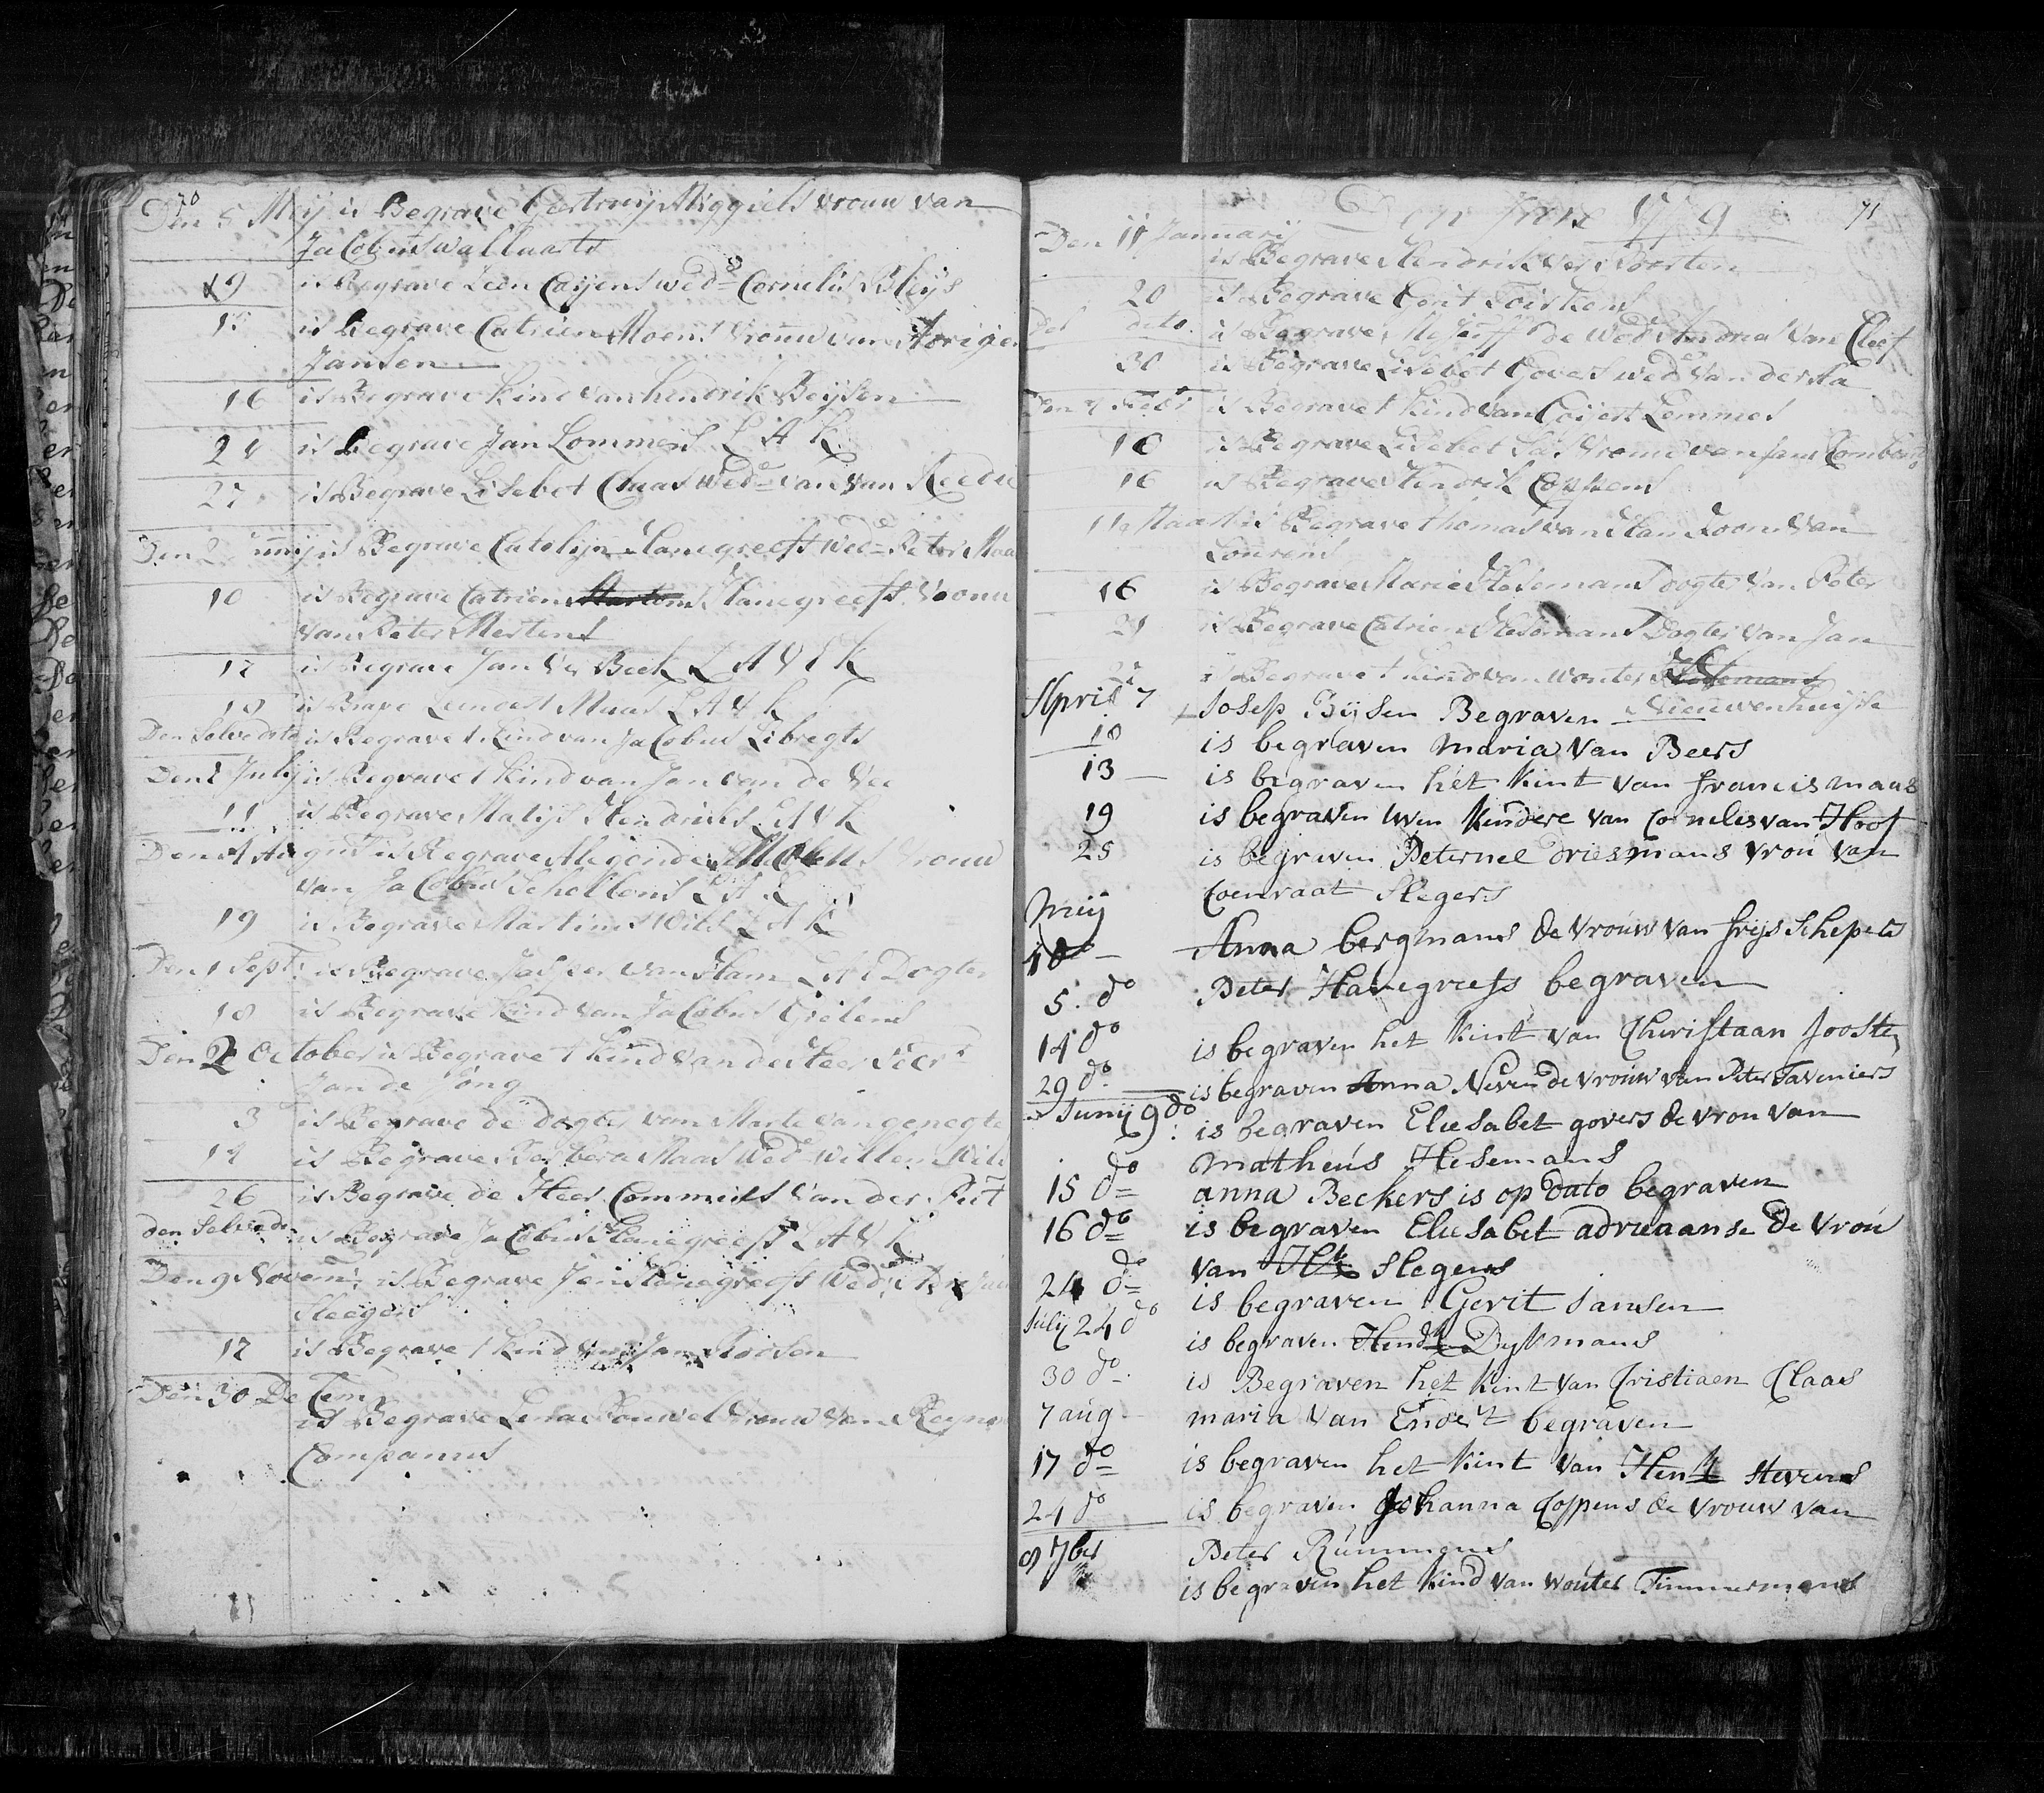 70
Den 5 Meij is Begrave Gertruij Miggiels vrouw van
Jacobus Wallaarts
19 is Begrave Leen Caijens wed=e Cornelis Blijs
15 is Begrave Catrien Moens vrouw van
Jansen
16 is Begrave kind van hendrik Beijsen
24 is Begrave Jan Lommers L A K
27 is Begrave Lisebet Claas Wed=e van van
Den 2 Junij is Begrave Catolijn Hanegreefs Wed=e Peter Maa
10 is Begrave Catrien Hanegreefs Vrouw
van Peter Mertens
17 is Begrave Jan Ver Beek L A V E K
18 is Begrave Leendert Maas L A V K
Den Selve dato is Begrave 1 kind van Jacobus Libregts
Den 1 Julij is Begrave 1 kind van Jan van de Vee
11 is Begrave Matijs Hendriks L A V K
Den August is Begrave Aligonde vrouw
van Jacobus Schellens L A K
19 is Begrave Martinus Wils L A K
Den 1 Sept: is Begrave Jasper van Ham L A Dogter
18 is Begrave kind van Jacobus Gielens
Den 2 October is Begrave 1 kind van de Heer Secr:
Jan de Jong
3 is Begrave de dogter van
14 is Begrave Berbera Maas Wed Willem Wils
26 is Begrave de Heer Commies van der Put
den Selve do is Begrave Jacobus Hanegreefs L A V K
Den 9 Novem: is Begrave Jen Hanegreefs Wed=e
Sleegers
17 is Begrave 1 kind van Jan Roosen
Den 30 Decem
is Begrave Lena vrouw van
Companus
71
Den Jare 1779
Den 11 Januarij
is Begrave Hendrik ver Voorten
20 is Begrave Gerit
Del dito is Begrave de Wed Andries van Cleef
30 is Begrave Lisebet Govers wed=e van der Sa
Den 7 Febr is Begrave 1 kind van Goijert Lemmes
10 is Begrave Lisebet vrouw van Jan
16 is Begrave Hendrik Coppens
11 Maart is Begrave thomas van Ham Soon van
Lourens
16 is Begrave Marie Hesemans dogter van Peter
21 is Begrave Catrien Hesemans Dogter van Jan
is Begrave 1 kind van Wouter
Nieuwenhuijse
April 7 Josep Gijsen Begraven
10 is begraven maria van Beers
13 is begraven het kint van francis maas
19 is begraven twen kindere van Cornelis van Hoof
25 is begraven Peternel driesmans vrou van
Coenraat Slegers
Meij
10 Anna bergmans de vrouw van frijs Schepers
5. do Peter Hanegreefs begraven
14 do is begraven het kint van Christiaan Jooste
29 do is begraven Anna Neven de vrouw van Peter Taveniers
Junij 9 do: is begraven Eliesabet govers de vrou van
Matheus Hesemans
15 do anna Beckers is op dato begraven
16 do is begraven Eliesabet adriaanse de vrou
van Hk Slegers
24 do is begraven Gerit Jansen
Julij 24 do is begraven Hendk Dykmans
30 do is Begraven het kint van Cristiaen Claas
7 aug maria van Endert begraven
17 do is begraven het kint van Henk Stevens
24 do is begraven Johanna Coppens de vrouw van
Peter Rummens
8 7ber is begraven het kind van wouter Timmermans